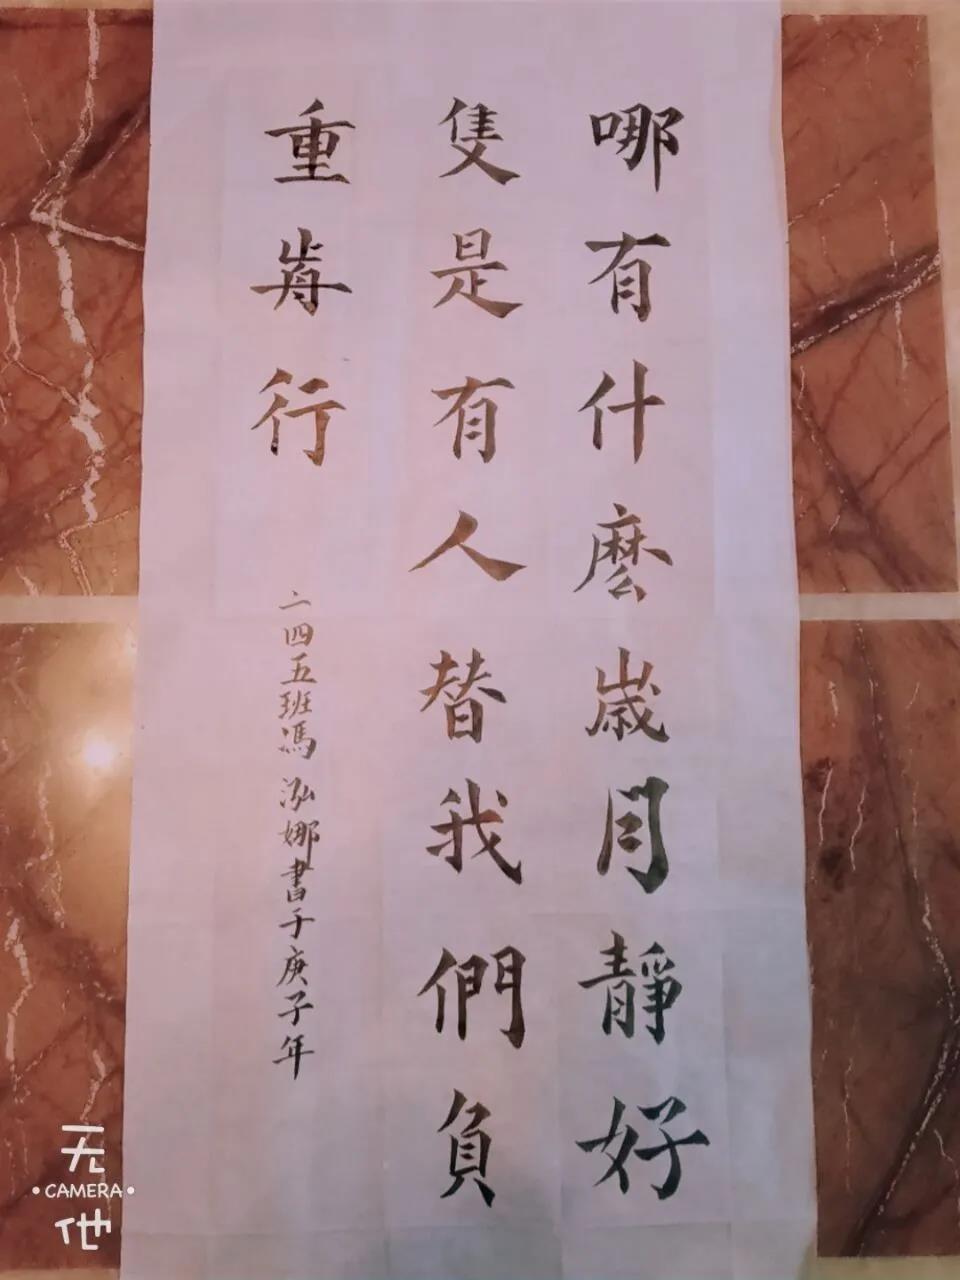 哪有什麼歲月靜好
隻是有人替我們負
重前行
一四五班馮泓娜書于庚子年
无
CAMERA
他